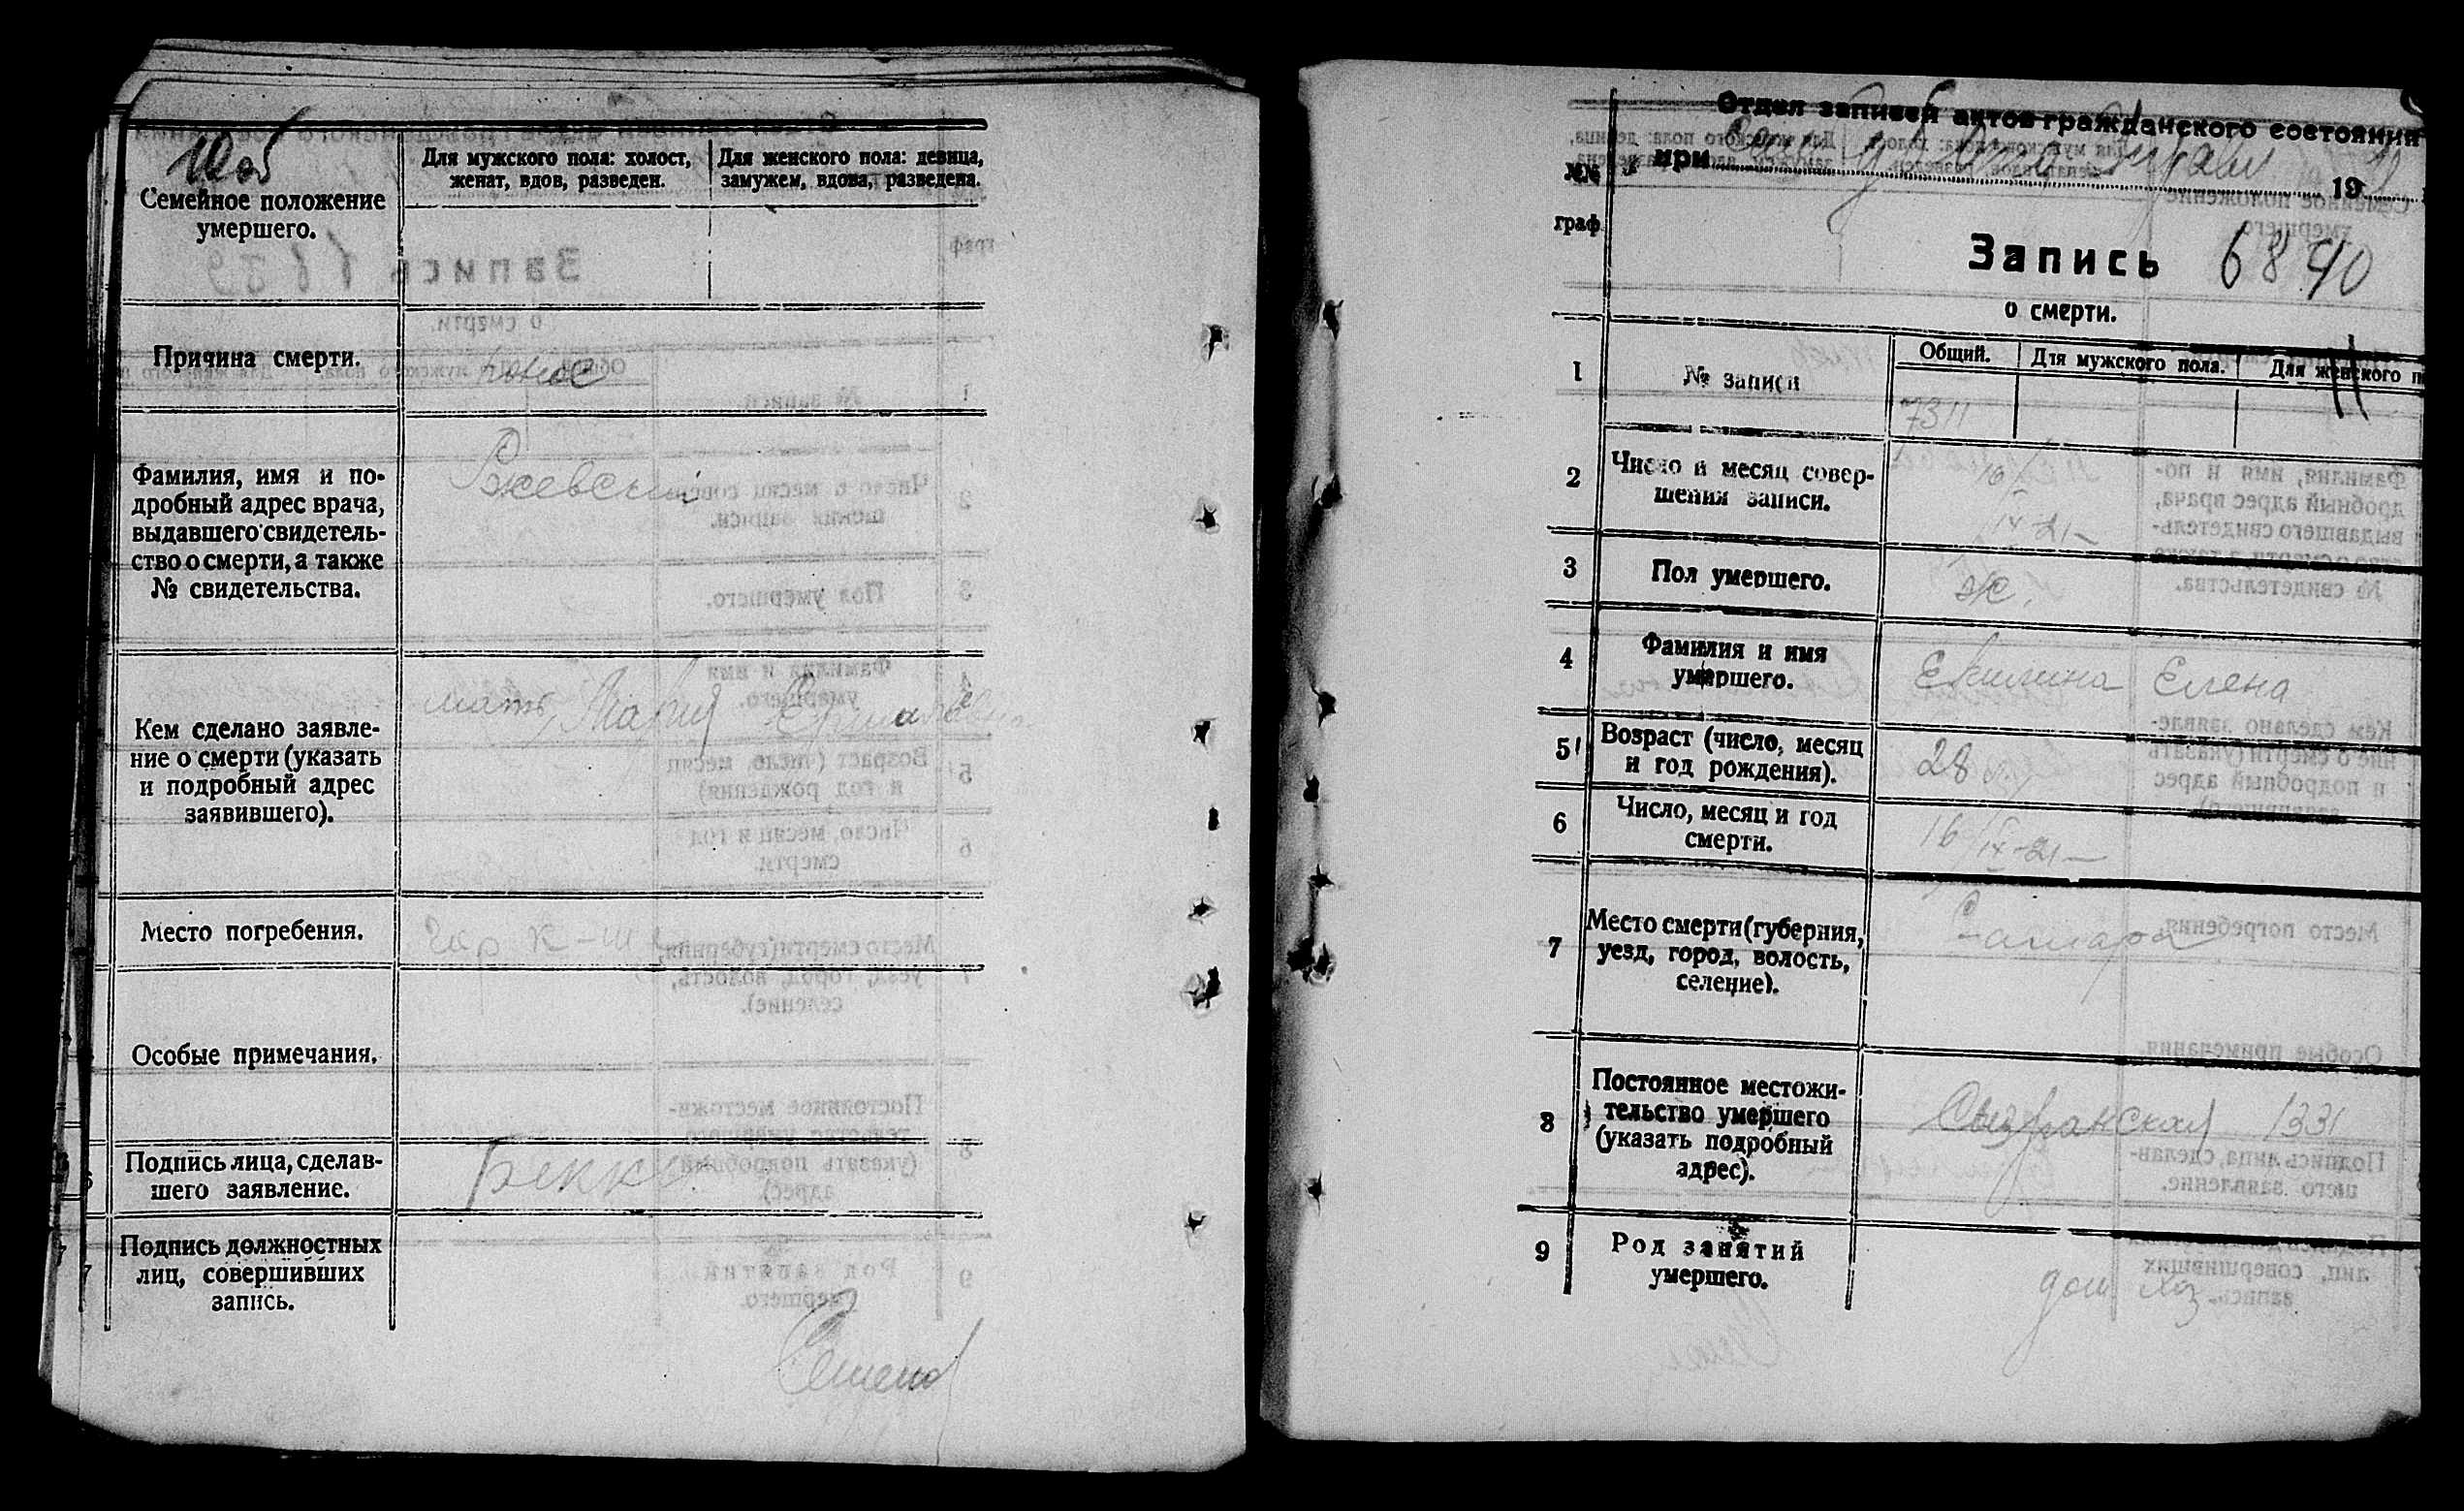 Семейное положение
умершего.
Для мужского пола: холост,
женат, вдов, разведен.
Для женского пола: девица,
замужем, вдова, разведена.
Причина смерти.
понос
Фамилия, имя и по-
дробный адрес врача,
выдавшего свидетель-
ство о смерти, а также
№ свидетельства.
Ржевский
Кем сделано заявле-
ние о смерти (указать
и подробный адрес
заявившего).
мать, Мария
Место погребения.
Особые примечания.
Подпись лица, сделав-
шего заявление.
Подпись должностных
лиц, совершивших
запись.
Отдел записей актов гражданского состояния
при
19
№№
граф.
Запись 6840
о смерти.
1
№ записи
Общий.
Для мужского пола.
Для женского п
7311
2
Число и месяц совер-
шения записи.
IX-21-
3
Пол умершего.
ж.
4
Фамилия и имя
умершего.
Екилина Елена
5
Возраст (число, месяц
и год рождения).
28
6
Число, месяц и год
смерти.
16/IX-21-
7
Место смерти (губерния,
уезд, город, волость,
селение).
Самара
8
Постоянное местожи-
тельство умершего
(указать подробный
адрес).
Сызранская 131
9
Род занятий
умершего.
дом хоз